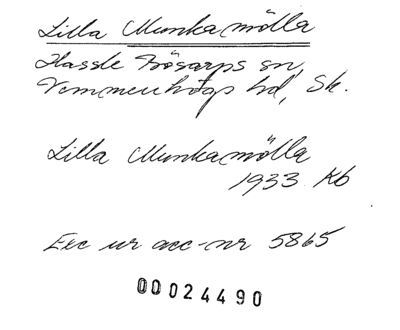 Lilla Munkamölla
Hassle Bösarps sn,
Vemmenhögs hd, Sk.
Lilla Munkamölla
1933 Kb
Exc ur acc-nr 5865
00024490